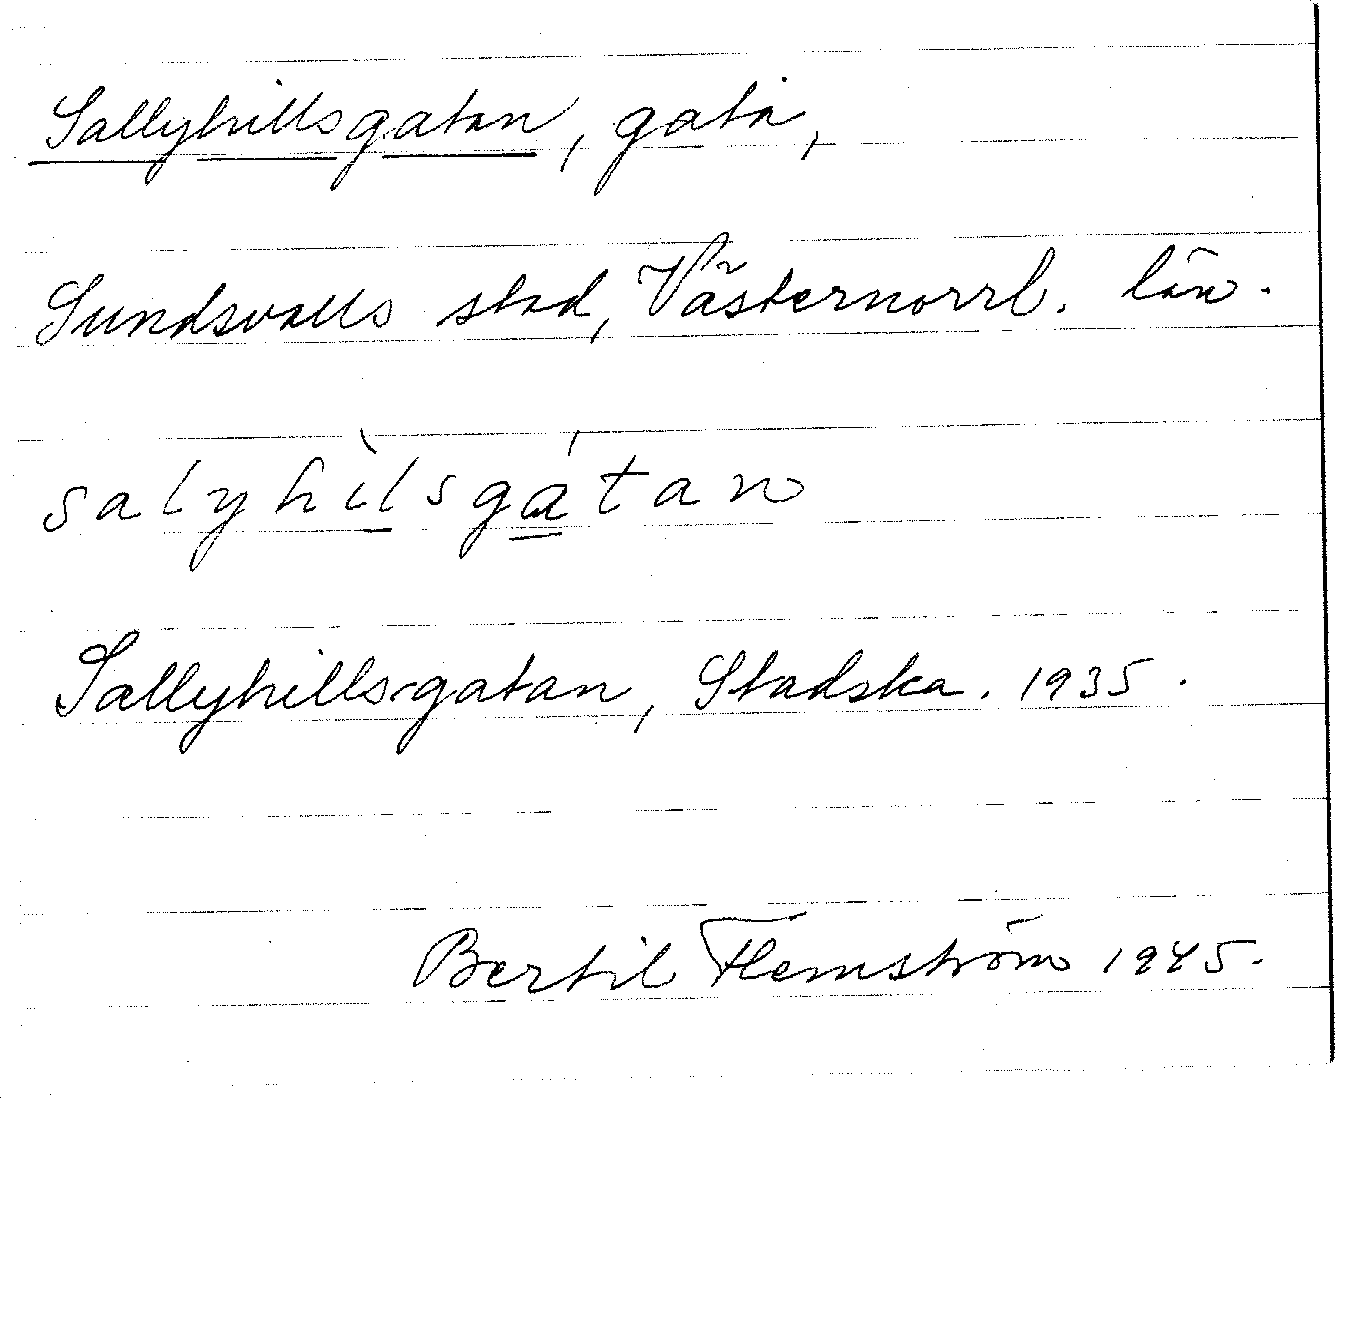 Sallyhillsgatan, gata,
Sundsvalls stad, Västernorrl. län.
salyhìlsgátan
Sallyhillsgatan, Stadska. 1935.
Bertil Flemström 1945.